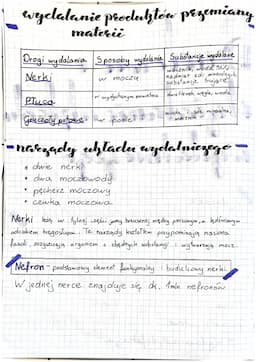 wydalanie produktów przemiany
materii
Drogi wydalania Sposoby wydalania Substancje wydalane
Nerki w moczu mocznik, nadmiar soli
Płuca w wydychanym powietrzu dwutlenek węgla, woda
Gruczoły potowe w pocie woda, sole mineralne, mocznik
narządy układu wydalniczego
• dwie nerki
• dwa moczowody
• pęcherz moczowy
• cewka moczowa
Nerki leżą w tylnej części jamy brzusznej między piersiowym a lędźwiowym
odcinkiem kręgosłupa. Te narządy kształtem przypominają nasiona
fasoli, oczyszczają organizm z zbędnych substancji i wytwarzają mocz.
Nefron - podstawowy element funkcjonalny i budulcowy nerki.
W jednej nerce znajduje się ok. 1mln nefronów.